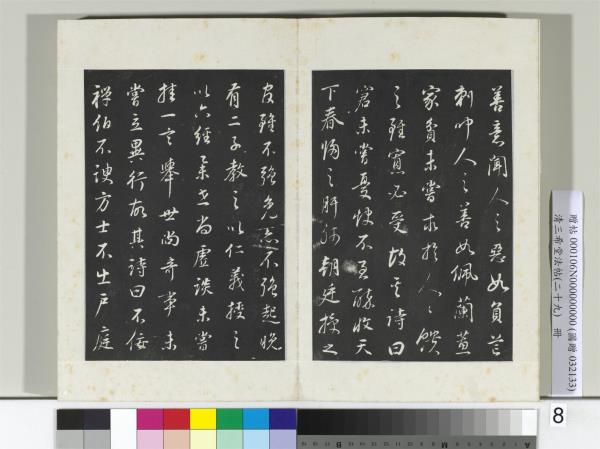 善意聞人之惡如負芒
刺聞人之善如佩蘭蕙
家貧未嘗求於人人饋
之雖寡必受故其詩曰
窘未嘗憂飲不至醉收天
下春歸之肝肺朝廷授之
官雖不強免亦不強起晚
有二子教之以仁義授之
以六經舉世尚虛談未嘗
掛一言舉世尚奇事未
嘗立異行故其詩曰不佞
禪伯不諛方士不出戶庭
贈帖 000106N000000000 (贈 032133)
清三希堂法帖(二十九) 冊
8